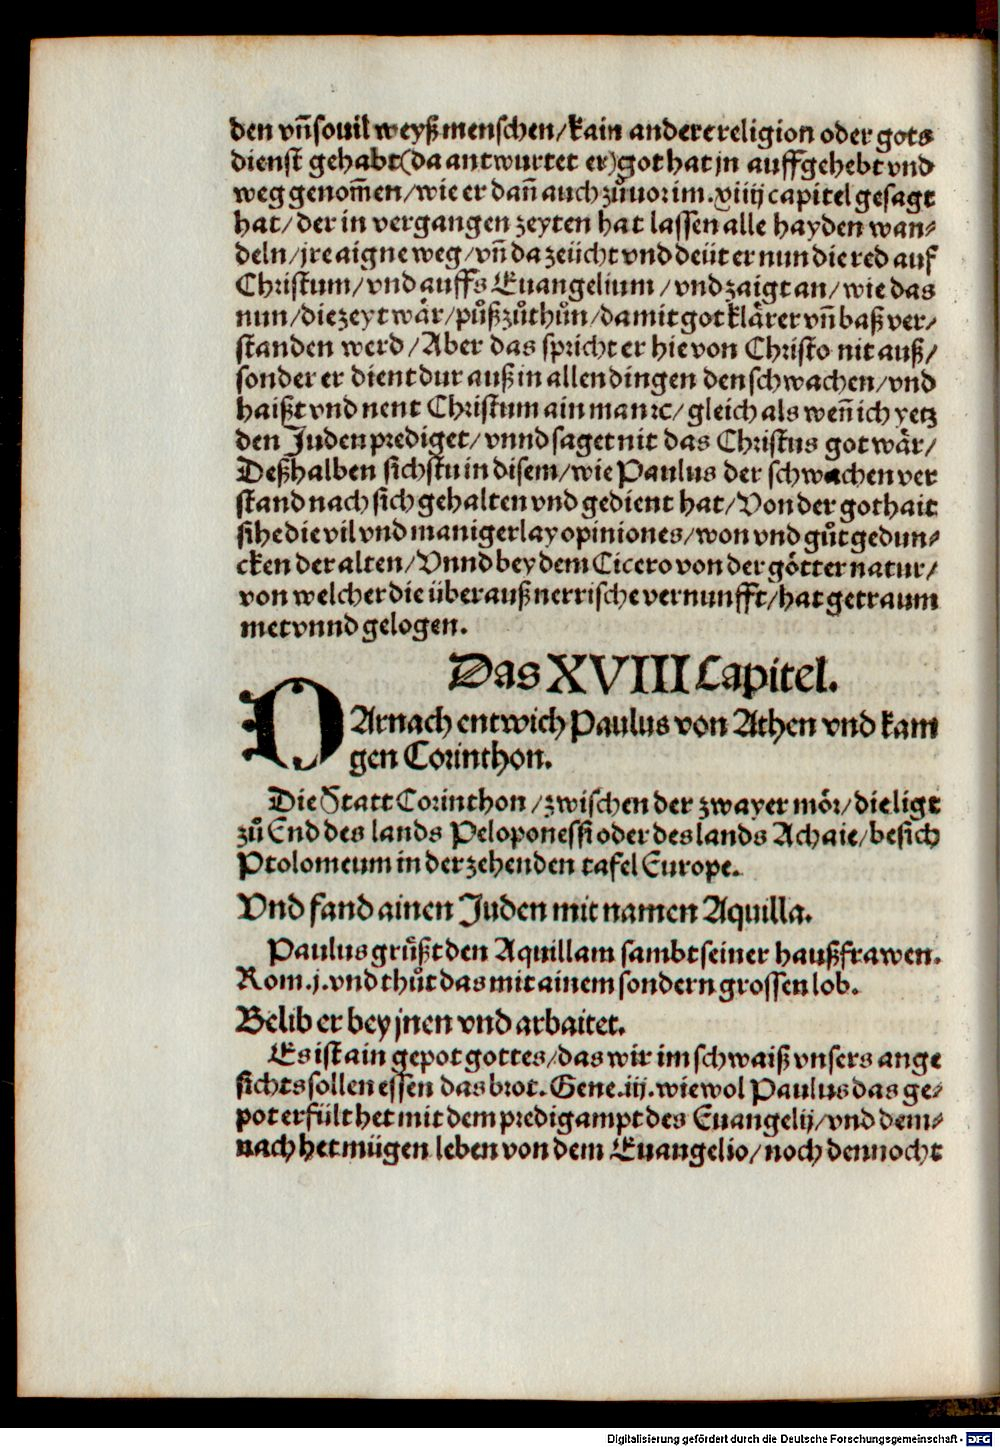 den vñ souil weyß menschen/kain andere religion oder gots
dienst gehabt(da antwurtet er)got hat jn auffgehebt vnd
weg genom̃en/wie er dañ auch zůuor im.xiiij capitel gesagt
hat/der in vergangen zeyten hat lassen alle hayden wan⸗
deln/jre aigne weg/vñ da zeücht vnd deüt er nun die red auf
Christum/vnd auffs Euangelium/vnd zaigt an/wie das
nun/die zeyt wär/půß zůthůn/damit got klärer vñ baß ver⸗
standen werd/Aber das spricht er hie von Christo nit auß/
sonder er dient dur auß in allen dingen den schwachen/vnd
haißt vnd nent Christum ain man ⁊c/gleich als weñ ich yetz
den Juden prediget/vnnd saget nit das Christus got wär/
Deßhalben sichstu in disem/wie Paulus der schwachen ver
stand nach sich gehalten vnd gedient hat/Von der gothait
sihe die vil vnd manigerlay opiniones/won vnd gůt gedun⸗
cken der alten/Vnnd bey dem Cicero von der götter natur/
von welcher die überauß nerrische vernunfft/hat getraum
met vnnd gelogen.
Das XVIII Capitel.
DArnach entwich Paulus von Athen vnd kam
gen Corinthon.
Die Statt Corinthon/zwischen der zwayer mör/die ligt
zů End des lands Peloponessi oder des lands Achaie/besich
Ptolomeum in der zehenden tafel Europe.
Vnd fand ainen Juden mit namen Aquilla.
Paulus grůßt den Aquillam sambt seiner haußfrawen.
Rom.j.vnd thůt das mit ainem sondern grossen lob.
Belib er bey jnen vnd arbaitet.
Es ist ain gepot gottes/das wir im schwaiß vnsers ange
sichts sollen essen das brot.Gene.iij.wiewol Paulus das ge⸗
pot erfült het mit dem predig ampt des Euangelij/vnd dem⸗
nach het mügen leben von dem Euangelio/noch dennocht
Digitalisierung gefördert durch die Deutsche Forschungsgemeinschaft - DFG